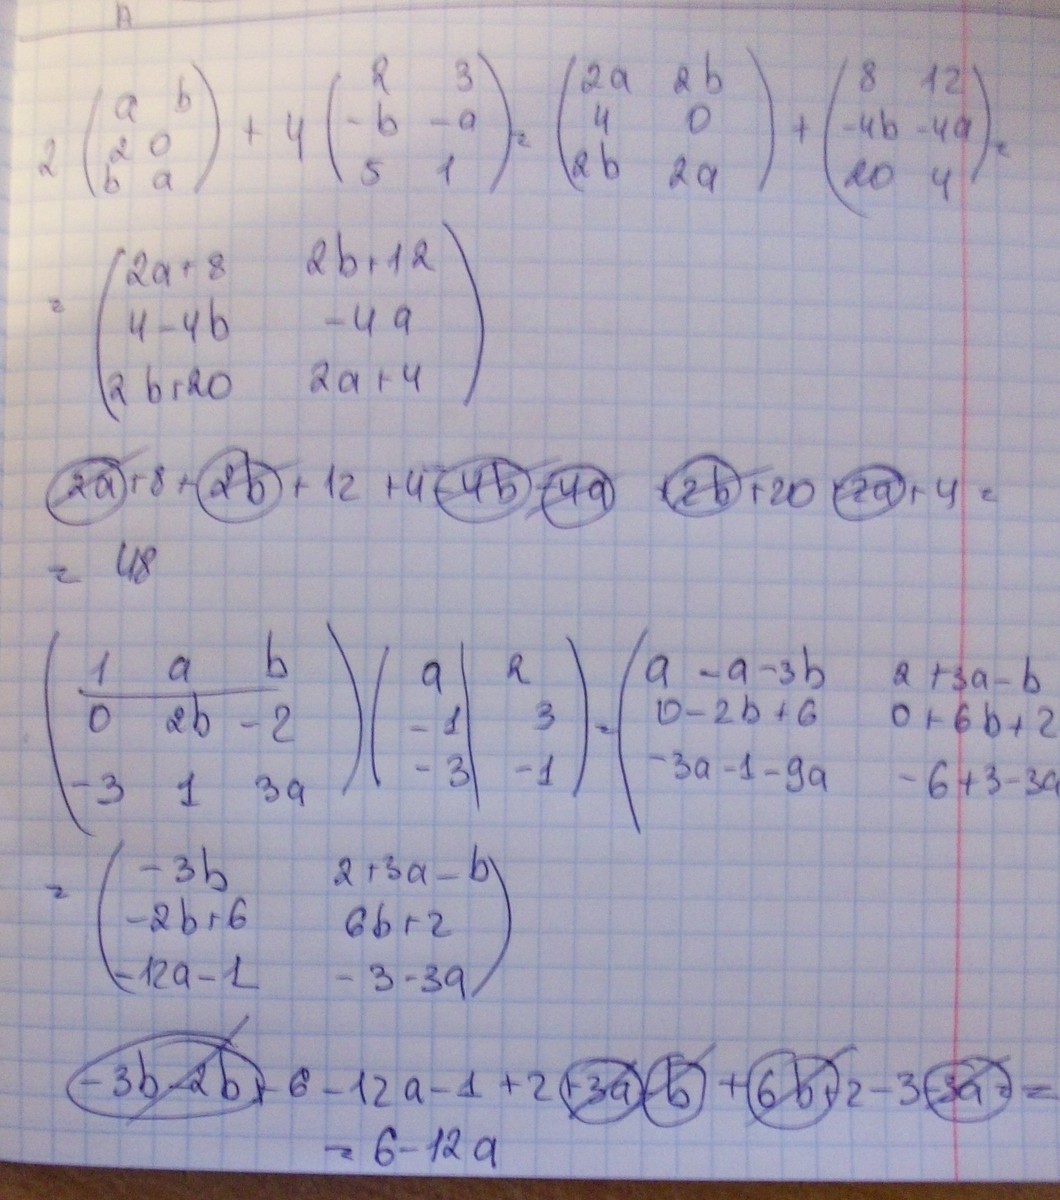 A
2 (a b; 2 0; b a) + 4 (2 3; -b -a; 5 1) = (2a 2b; 4 0; 2b 2a) + (8 12; -4b -4a; 20 4) =
= (2a+8 2b+12; 4-4b -4a; 2b+20 2a+4)
2a+8+2b+12+4-4b-4a+2b+20 2a+4=
= 48
(1 a b; 0 2b -2; -3 1 3a) (a 2; -1 3; -3 -1) = (a-a-3b 2+3a-b; 0-2b+6 0+6b+2; -3a-1-9a -6+3-3a
= (-3b 2+3a-b; -2b+6 6b+2; -12a-1 -3-3a)
-3b-2b+6-12a-1+2+3a-b+6b+2-3-3a=
= 6-12a